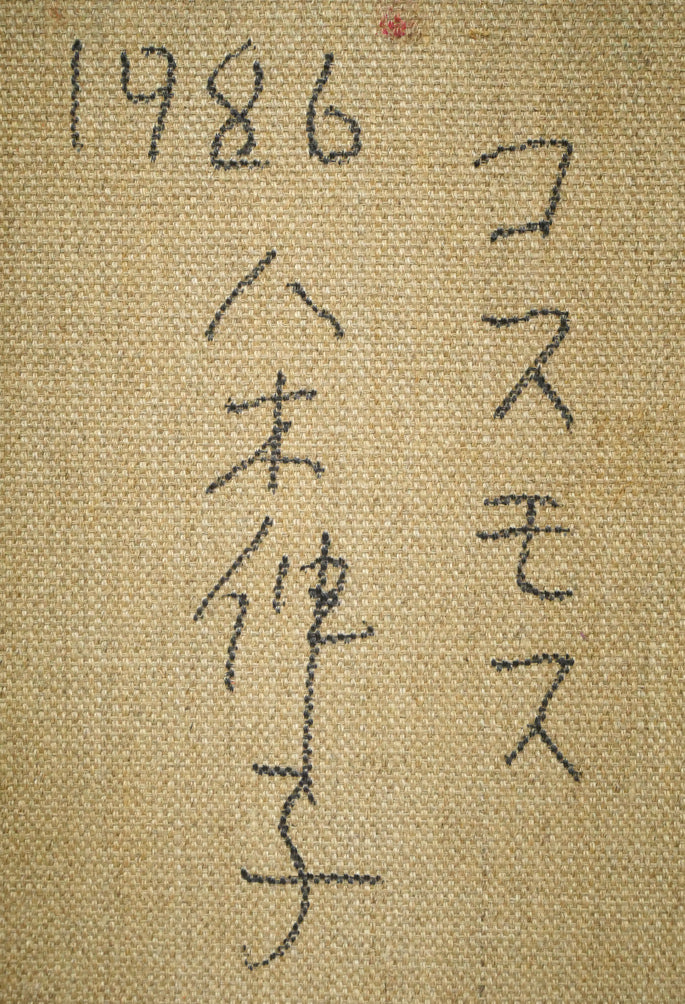 コスモス
1986
八木伸子